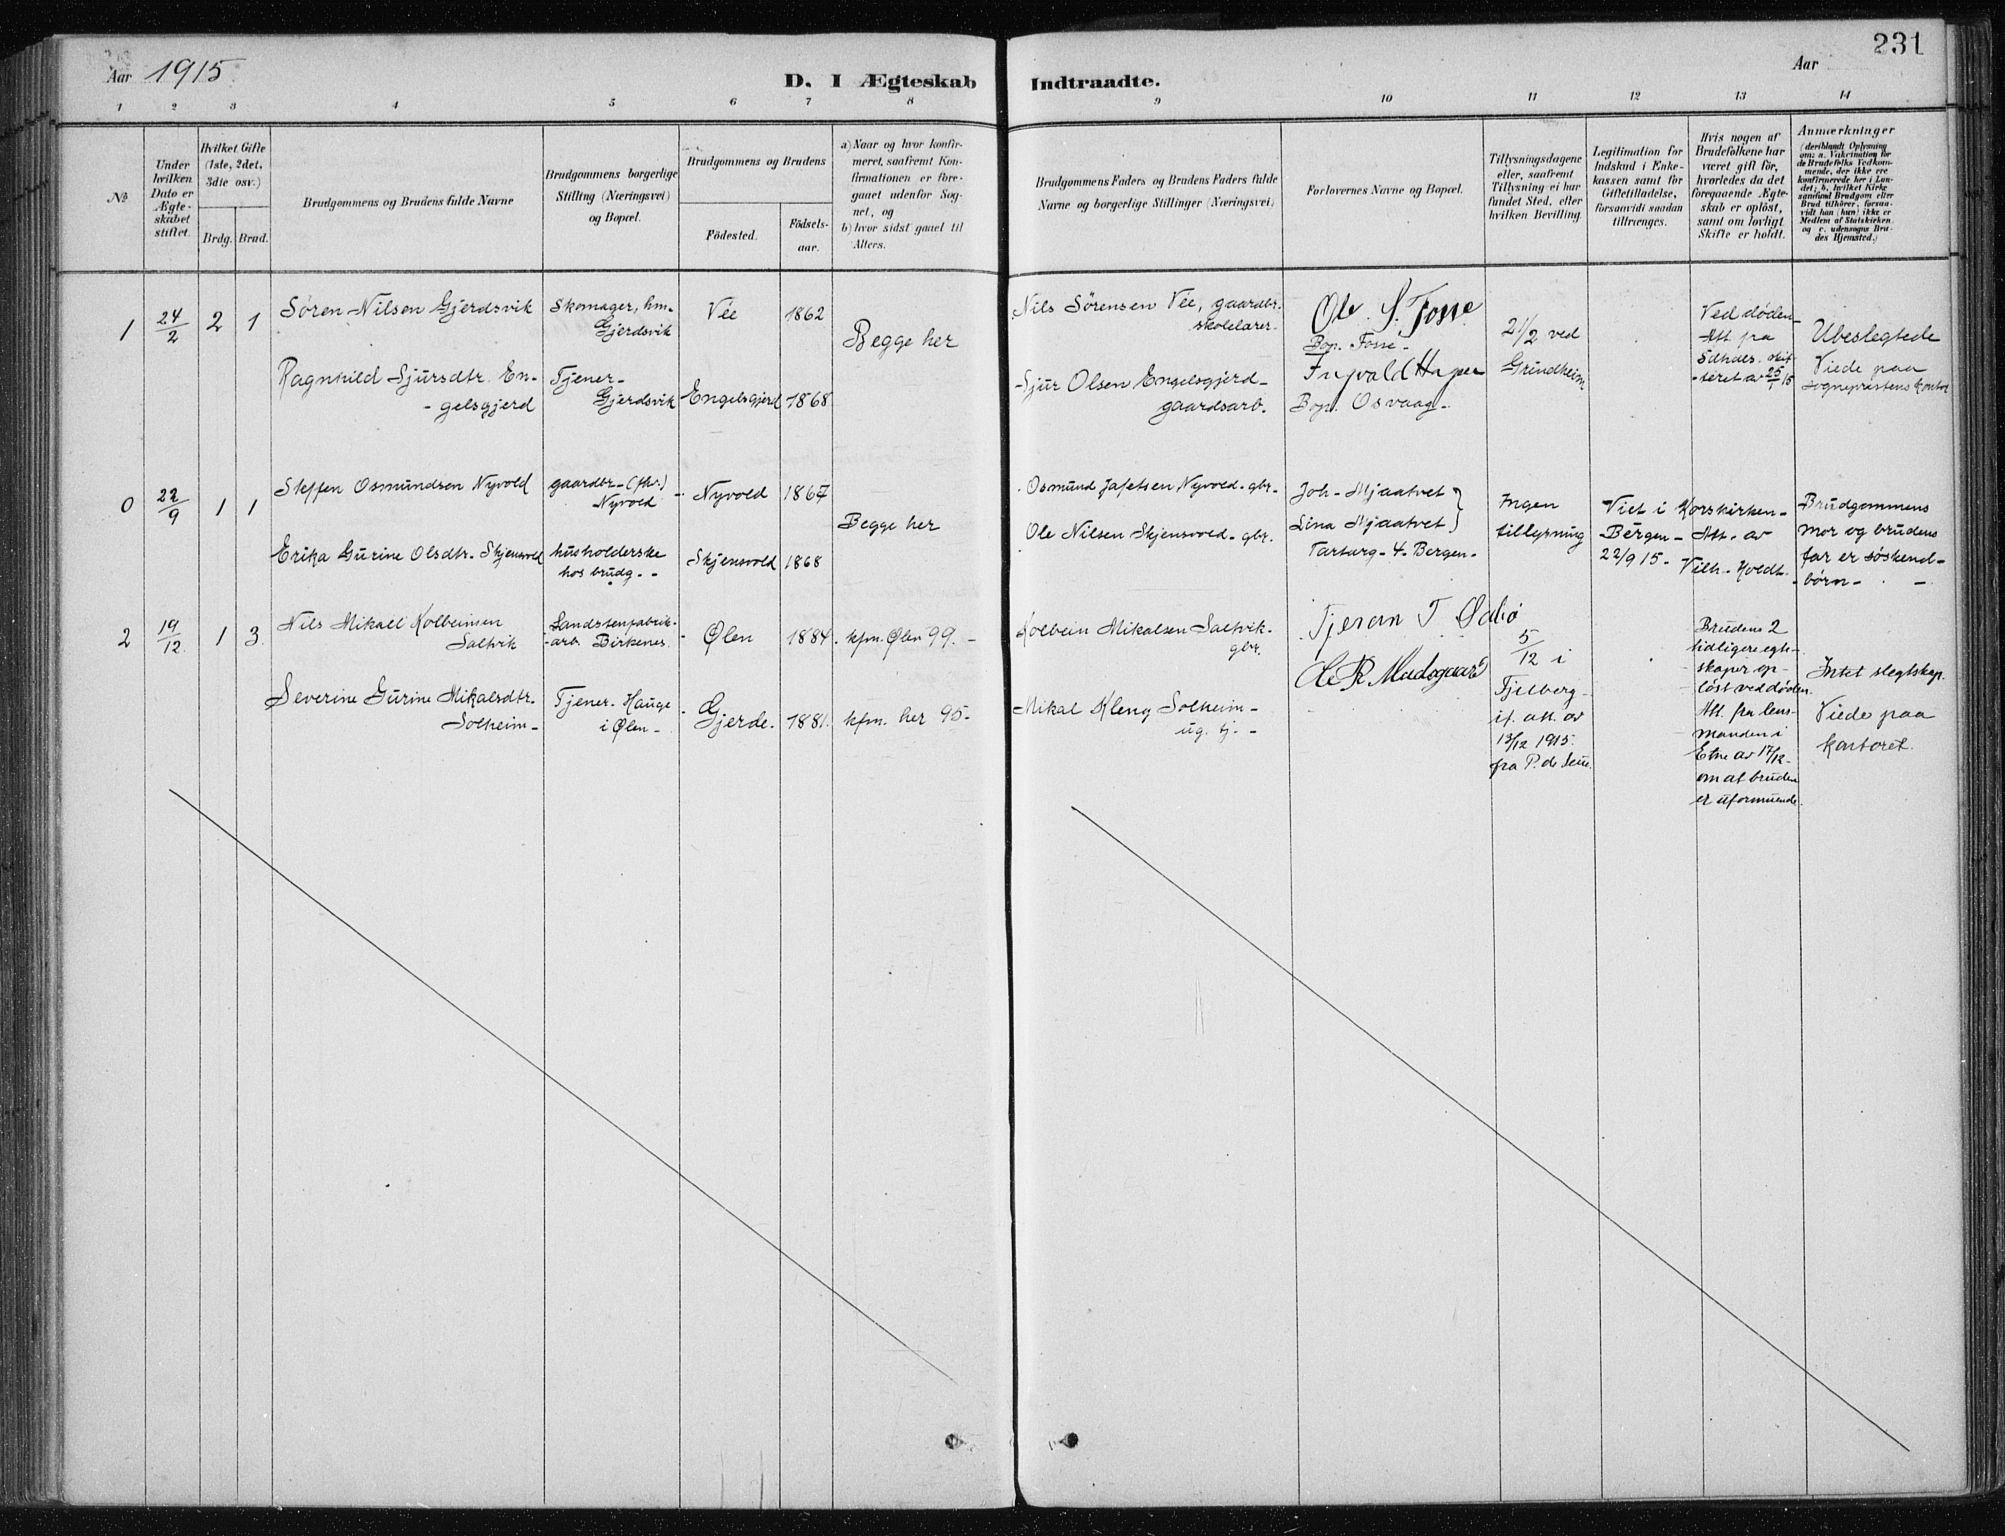 Aar 1915
D. I Ægteskab Indtraadte.
Aar
231
1 2 3 4 5 6 7 8 9 10 11 12 13 14
No
Under hvilken Dato er Ægteskabet stiftet.
Hvilket Gifte (1ste, 2det, 3die osv.)
Brdg. Brud.
Brudgommens og Brudens fulde Navne
Brudgommens borgerlige Stilling (Næringsvei) og Bopæl.
Brudgommens og Brudens
Fødested.
Fødselsaar.
a) Naar og hvor konfirmeret, saafremt Konfirmationen er foregaaet udenfor Sognet, og
b) hvor sidst gaaet til Alters.
Brudgommens Faders og Brudens Faders fulde Navne og borgerlige Stillinger (Næringsvei)
Forlovernes Navne og Bopæl.
Tillysningsdagene eller, saafremt Tillysning ei har fundet Sted, efter hvilken Bevilling.
Legitimation for Indskud i Enkekassen samt for Giftetilladelse, forsaavidt saadan tiltrænges.
Hvis nogen af Brudefolkene har været gift før, hvorledes da det foregaaende Ægteskab er opløst, samt om lovligt Skifte er holdt.
Anmærkninger (deriblandt Oplysning om: a. Vakcination for de Brudefolks Vedkommende, der ikke ere konfirmerede her i Landet; b. hvilket Kirkesamfund Brudgom eller Brud tilhører, forsaavidt han (hun) ikke er Medlem af Statskirken, og c. udensogns Brudes Hjemsted.)
1
24/2
2
1
Søren Nilsen Gjerdsvik
Skomager, hm.
Gjerdsvik
Vée
1862
Begge her
Nils Sørensen Vée, gaardbr.
skolelærer
Ole S. Fosse
Bop. Fosse
21/2 ved
Grindheim
Ved døden
Att. pa
skifteret av 25/1 15
Ubeslegtede
Viede paa
sogneprestens kontor
Ragnhild Sjursdtr. En-
gelsgjerd
Tjener
Gjerdsvik
Engelsgjerd
1868
Sjur Olsen Engelsgjerd
gaardsarb.
Ingvald
Bop. Osvaag
0
22/9
1
1
Steffen Osmundsen Nyvold
gaardbr. (fhv.)
Nyvold
Nyvold
1867
Begge her
Osmund Jafetsen Nyvold gbr.
Joh. Mjaatvet
Lina Mjaatvet
Tartarg. 4. Bergen
Ingen
tillysning
Viet i Korskirken
Bergen
22/9 15
Att. av
Vilh. Koldt
Brudgommens
mor og brudens
far er søskend-
børn
Erika Gurine Olsdtr. Skjensvold
husholderske
hos brudg.
Skjensvold
1868
Ole Nilsen Skjensvold gbr.
2
19/12
1
3
Nils Mikael Kolbeinsen
Saltvik
Sandstenfabrik-
arb. Birkenes
Ølen
1884
kfm. Ølen 99.
Kolbein Mikalsen Saltvik
gbr.
Tjeran T Ødbø
Madsgaard
5/12 i
Fjelberg
if. att. av
13/12 1915
fra P. de Seue
Brudens 2
tidligere egte-
skaper op-
løst ved døden
Att. fra lens-
manden i
Etne av 17/12
om at bruden
er uformuende.
Intet slegtskap.
Viede paa
kontoret.
Severine Gurine Mikalsdtr.
Solheim
Tjener. Hauge
i Ølen
Gjerde
1881.
kfm. her 95
Mikal Kleng Solheim
ug. tj.